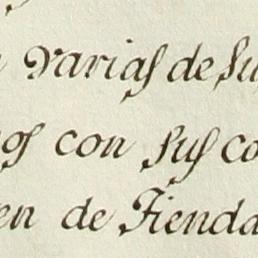 varias de su
os con sus co
en de Tienda